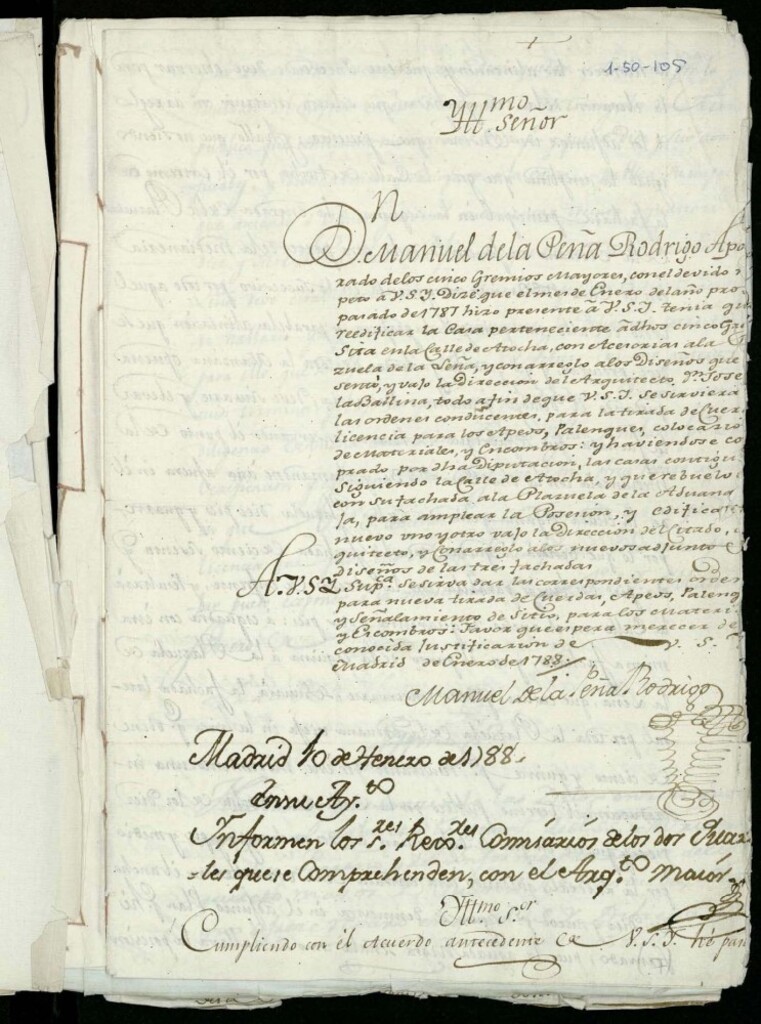 1-50-105
Yllmo
Señor
Dn Manuel de la Peña Rodrigo Apo
rado delos cinco Gremios Mayores, con el devido r
peto â V.S.Y. Dize que el mes de Enero del año pro
pasado de 1787 hizo presente â V.S.Y. tenia qu
reedificar la Casa perteneciente âdhos cinco Gre
Sita en la Calle de Atocha, con Acesorias ala
zuela de la Leña, y con arreglo alos Diseños que
sento, y vajo la Direccion del Arquitecto, Dn Jose
la Ballina, todo afin de que V.S.Y. se sirviera
las ordenes conducentes, para la tirada de Cuer
licencia para los Apeos, Palenques, colocacio
de Materiales, y Encombros: y haviendose co
prado por dha Diputacion, las casas contigu
Siguiendo la Calle de Atocha, y que rebuelv
con su fachada ala Plazuela de la Aduana
ja, para amplear la Posesion, y edificar
nuevo uno y otro vajo la Direccion del Citado,
quitecto, y Con arreglo alos nuevos adjunto
diseños de las tres fachadas
A. V.S.Y. Supca. se sirva dar las correspondientes orden
para nueva tirada de Cuerdas, Apeos, Palenq
y Señalamiento de Sitio, para los Materi
y Escombros: Favor que espera merecer de
conocida Justificacion de V. S.
Madrid de Enero de 1788
Manuel de la Peña Rodrigo
Madrid 10 de Henero de 1788.
En su Ay.to
Informen los s.res Rexo.res Comisarios de los dos Quar
-les que se Comprehenden, con el Arq.to maior
Yllmo. S.or
Cumpliendo con el Acuerdo antecedente de V.S.Y. hé pas